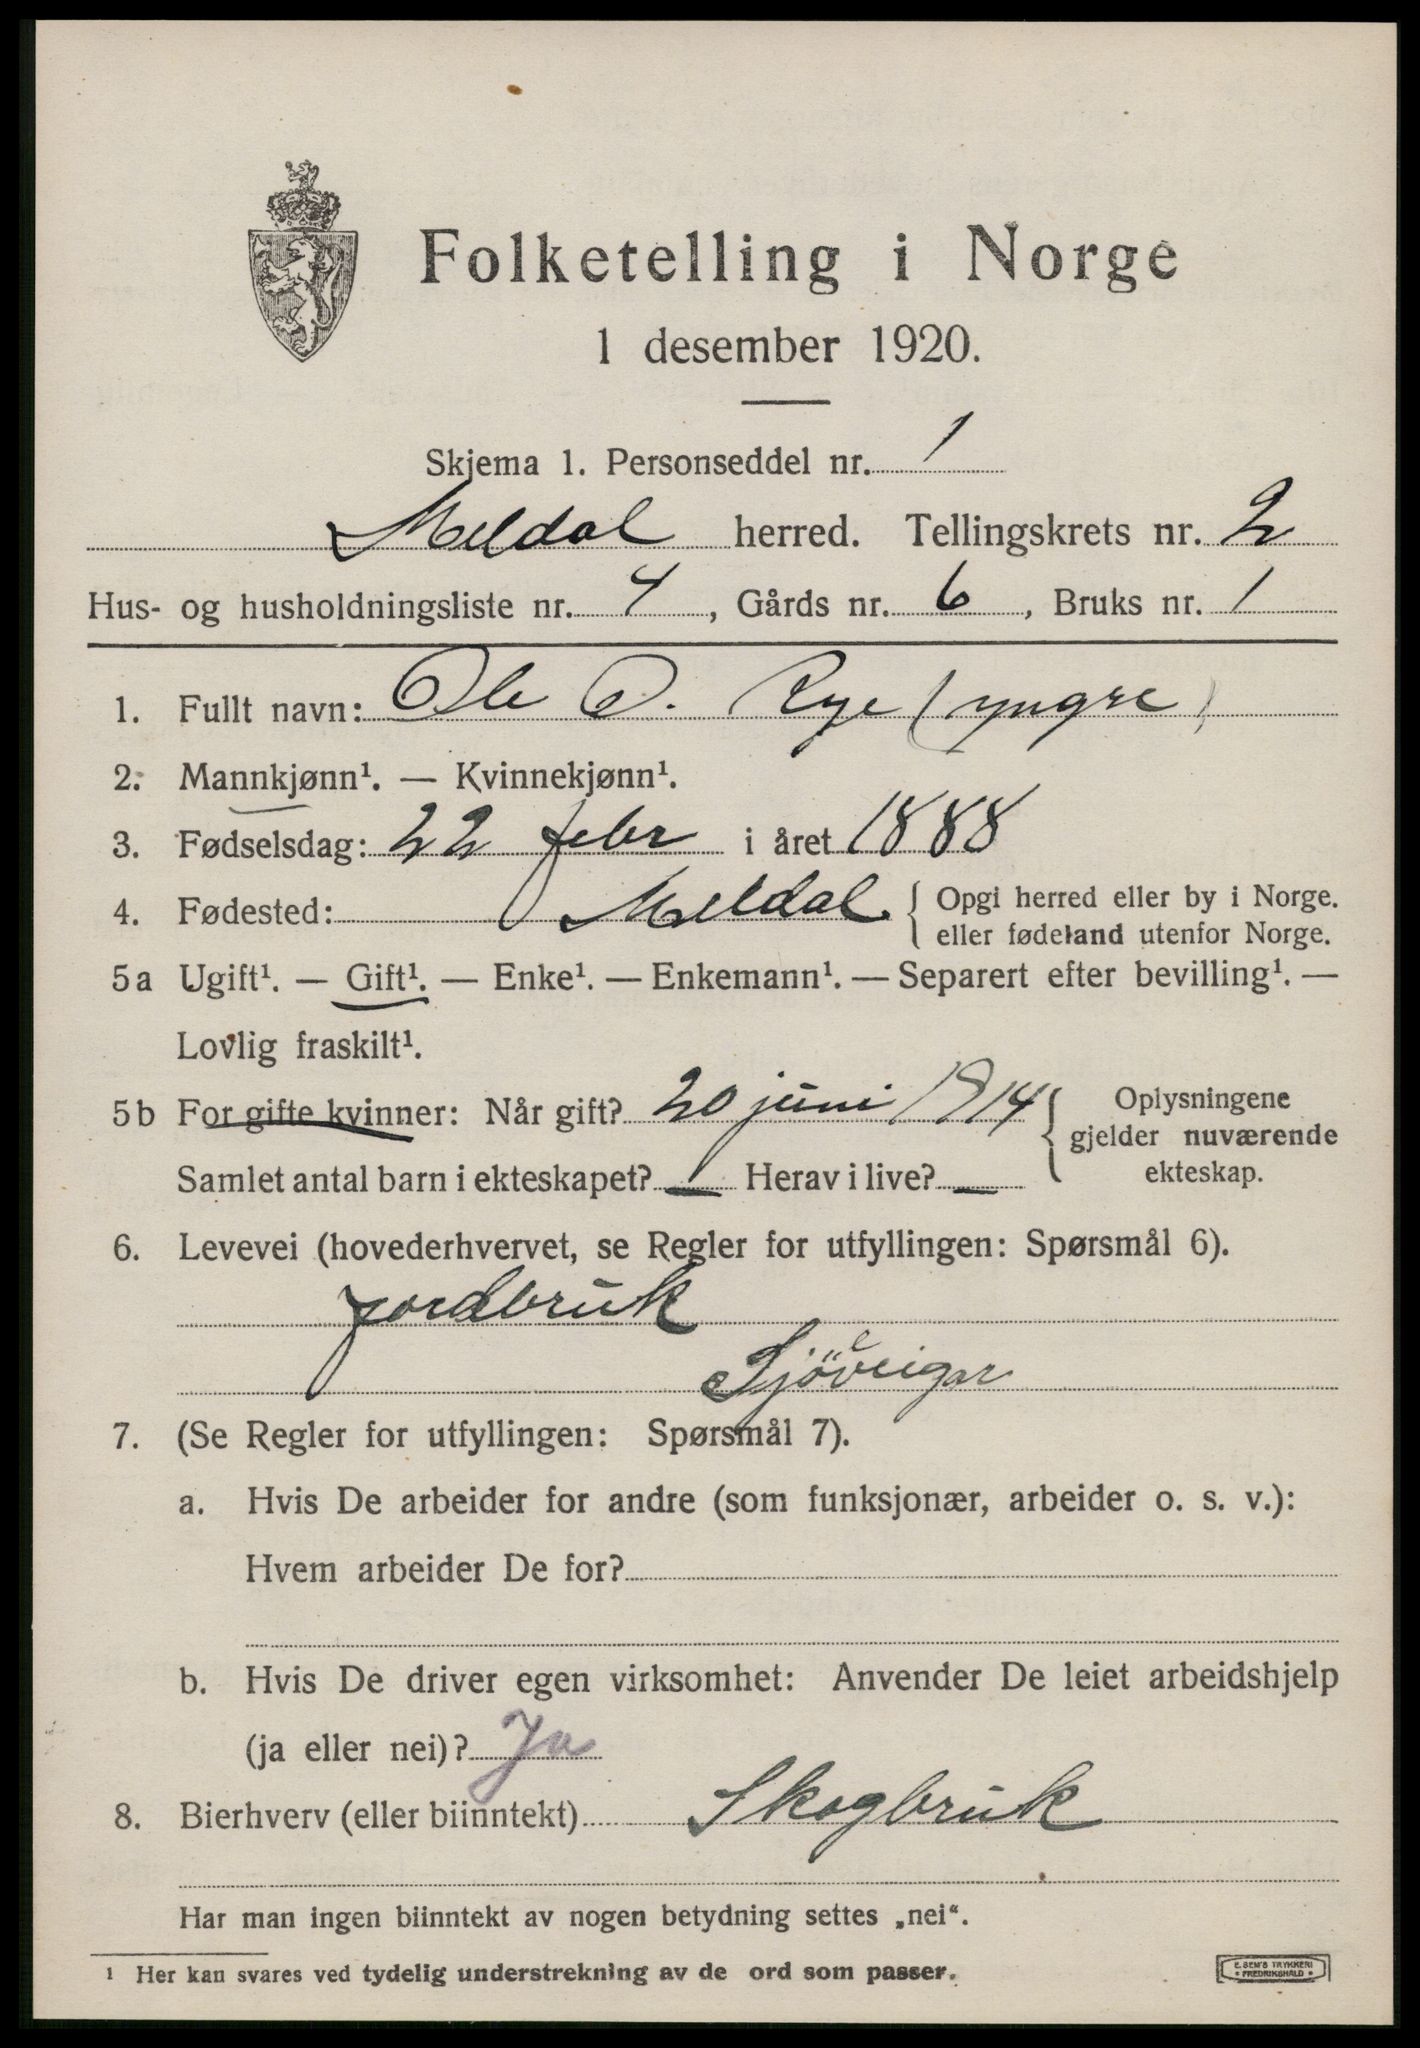 Folketelling i Norge
1 desember 1920.
Skjema 1. Personseddel nr. 1
Meldal herred. Tellingskrets nr. 2
Hus- og husholdningsliste nr. 4, Gårds nr. 6, Bruks nr. 1
1. Fullt navn: Ole O. Rye (yngre)
2. Mannkjønn¹. — Kvinnekjønn¹.
3. Fødselsdag: 22 febr i året 1888
4. Fødested: Meldal { Opgi herred eller by i Norge.
eller fødeland utenfor Norge.
5a Ugift¹. — Gift¹. — Enke¹. — Enkemann¹. — Separert efter bevilling¹. —
Lovlig fraskilt¹.
5b For gifte kvinner: Når gift? 20 juni 1914 { Oplysningene
gjelder nuværende
Samlet antal barn i ekteskapet? — Herav i live? — ekteskap.
6. Levevei (hovederhvervet, se Regler for utfyllingen: Spørsmål 6).
jordbruk
7. (Se Regler for utfyllingen: Spørsmål 7).
a. Hvis De arbeider for andre (som funksjonær, arbeider o. s. v.):
Hvem arbeider De for?
b. Hvis De driver egen virksomhet: Anvender De leiet arbeidshjelp
(ja eller nei)? Ja
8. Bierhverv (eller biinntekt) Skogbruk
Har man ingen biinntekt av nogen betydning settes „nei“.
¹ Her kan svares ved tydelig understrekning av de ord som passer.
E. SEM'S TRYKKERI
• FREDRIKSHALD •